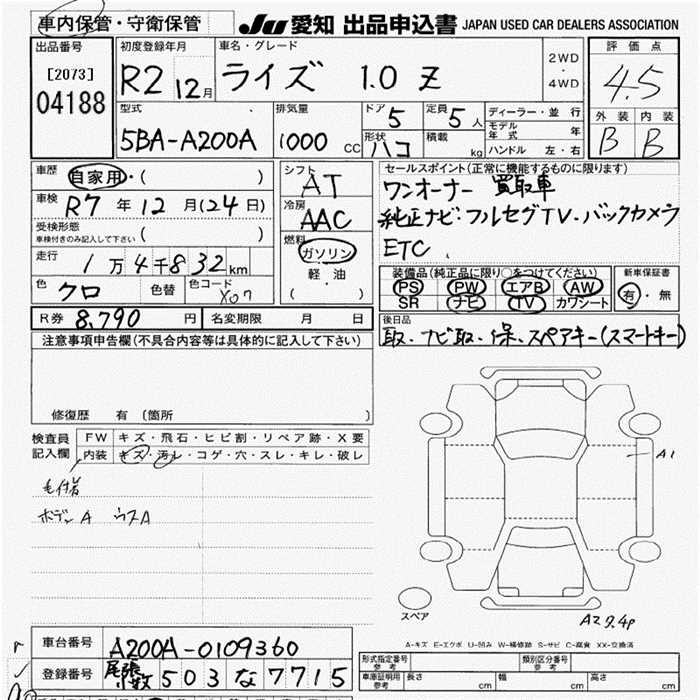 車内保管・守衛保管
JU 愛知 出品申込書 JAPAN USED CAR DEALERS ASSOCIATION
出品番号
[2073]
04188
初度登録年月
R2 12月
車名・グレード
ライズ 1.0 Z
2WD
・
4WD
評価点
4.5
外装 内装
B B
型式
5BA-A200A
排気量
1000 CC
ドア 5
定員 5人
形状 ハコ
積載 kg
ディーラー・並行
モデル年式 年
ハンドル 左・右
車歴 自家用・( )
車検 R7年12月(24日)
受検形態
車検付きのみ記入して下さい ( )
走行 1万4千832km
色 クロ 色替 色コード X07
シフト
AT
冷房
AAC
燃料
ガソリン
軽・油
( )
セールスポイント(正常に機能するものに限ります)
ワンオーナー 買取車
純正ナビ・フルセグTV・バックカメラ
ETC
装備品(純正品に限り○をつけてください)
PS PW エアB AW
SR ナビ TV カワシート
新車保証書
有・無
R券 8,790円 名変期限 月 日
後日品
取、ナビ取、保、スペアキー(スマートキー)
注意事項申告欄(不具合内容等は具体的に記入して下さい)
修復歴 有 〔箇所
検査員記入欄
FW キズ・飛石・ヒビ割・リペア跡・X要
内装 キズ・汚レ・コゲ・穴・スレ・キレ・破レ
ボデーA ウスA
A1
スペア
A-キズ E-エクボ U-凹み W-補修跡 S-サビ C-腐食 XX-交換済
車台番号 A200A-0109360
登録番号 尾張小牧 503 な 7715
形式指定番号 参考
類別区分番号 参考
車庫証明用 参考 長さ cm 幅 cm 高さ cm